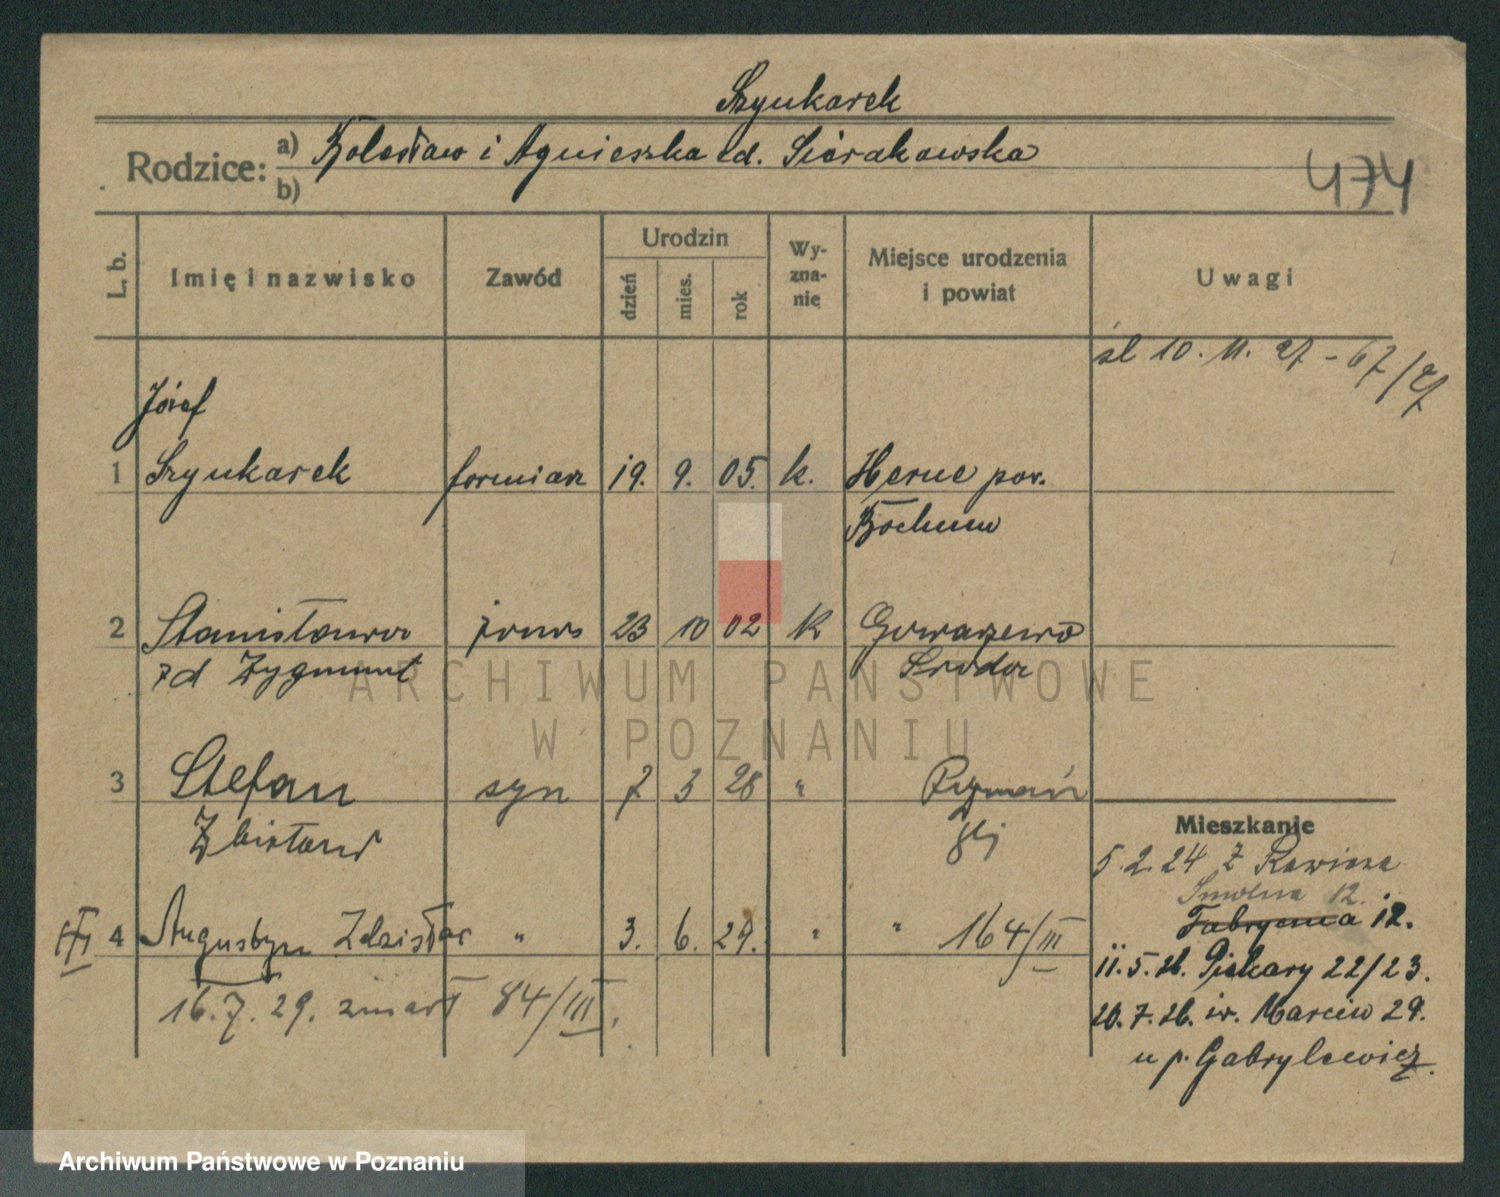 Szyukarek
Rodzice: a) Bolesław i Agnieszka zd. Sierakowska
b)
474
L. b.
Imię i nazwisko
Zawód
Urodzin
dzień
mies.
rok
Wy-
zna-
nie
Miejsce urodzenia
i powiat
Uwagi
śl 10. 11. 27 - 67/27
Józef
1 Szyukarek formiarz 19. 9. 05. k. Herne pow.
Bochum
2 Stanisława żona 23 10 02 k Gowarzewo
zd Zygmunt Środa
3 Stefan syn 7 3 28 " Poznań
Zbisław
Mieszkanie
5.2.24 z Rawicza
Smolna 12.
Fabryczna 12.
4 Augustyn Zdzisław " 3. 6. 29. " " 164/III
11.5.26. Piekary 22/23.
16.7.29. zmarł 84/III.
20.7.26. św. Marcin 29.
u p. Gabrylewicz.
ARCHIWUM PAŃSTWOWE
W POZNANIU
Archiwum Państwowe w Poznaniu